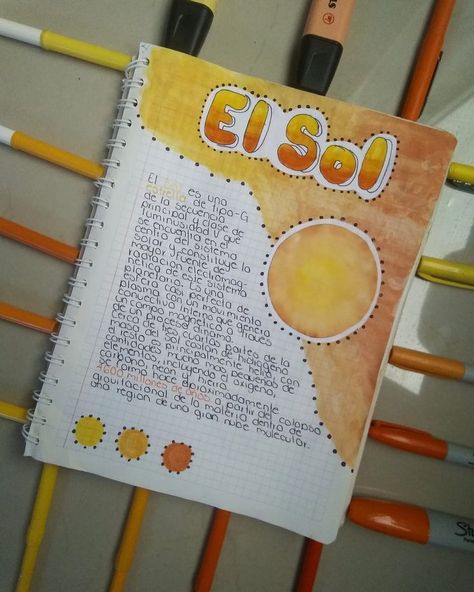 El Sol
El es una
estrella de tipo-G
de la secuencia
principal y clase de
luminosidad V que
se encuentra en el
centro del sistema
solar y constituye la
mayor fuente de
radiación electromag-
netica de este sistema
planetario. Es una
esfera casi perfecta de
plasma, con un movimiento
convectivo interno que genera
un campo magnético a través
de un proceso de
Cerca de tres cuartas partes de la
masa del Sol constan de hidrógeno
el resto es principalmente helio, con
cantidades mucho más pequeñas de
elementos, incluyendo el oxígeno,
carbono neon y hierro.
aproximadamente
4600 millones de años a partir del colapso
gravitacional de la materia dentro de
una region de una gran nube molecular.